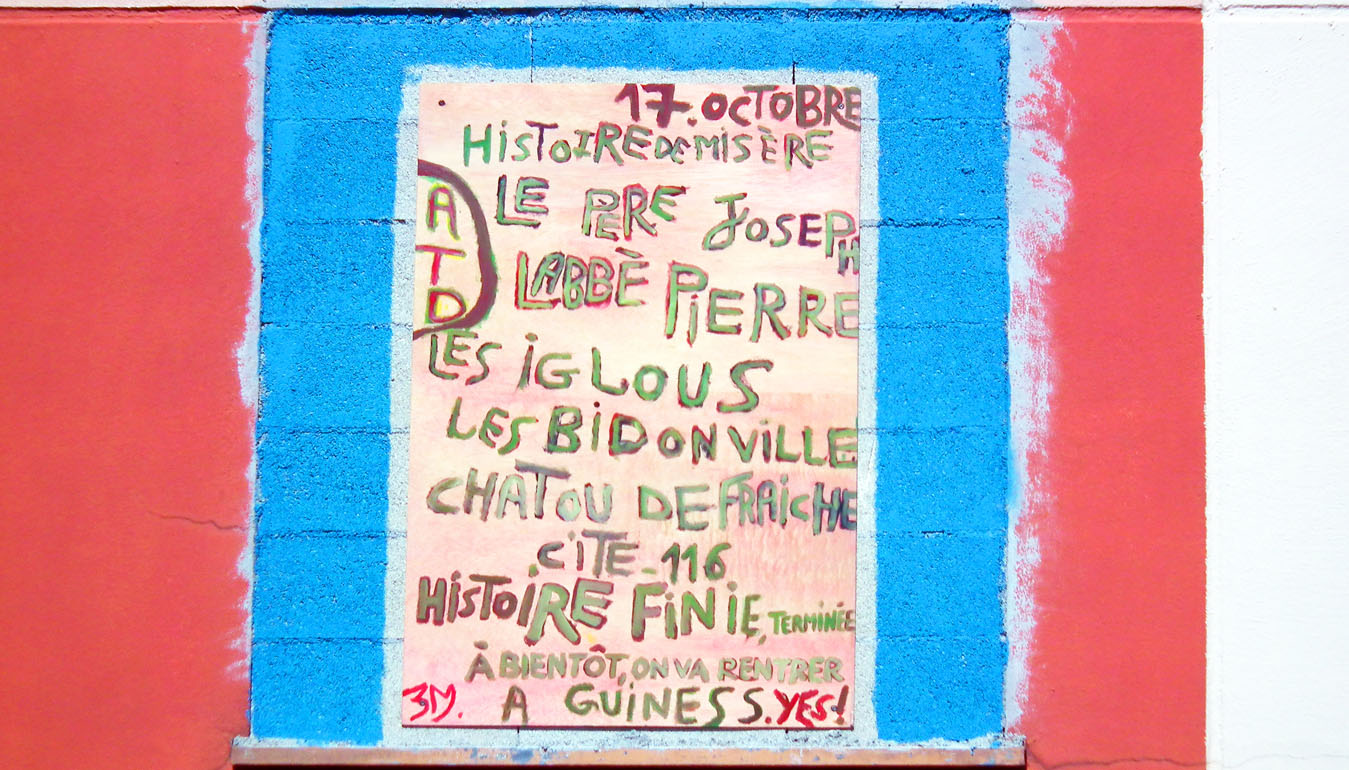 17. OCTOBRE
HiSTOIRE De MISÈRE
ATD
LE PERE JOSEPH
LABBÈ PiERRE
LES iGLOUS
LES BiDONViLLE
CHATOU DE FRAiCHE
CiTE - 116
HiSTOiRE FiNiE, TERMiNÉE
À BiENTÔT, ON VA RENTRER
A GUiNESS. YES!
3M.